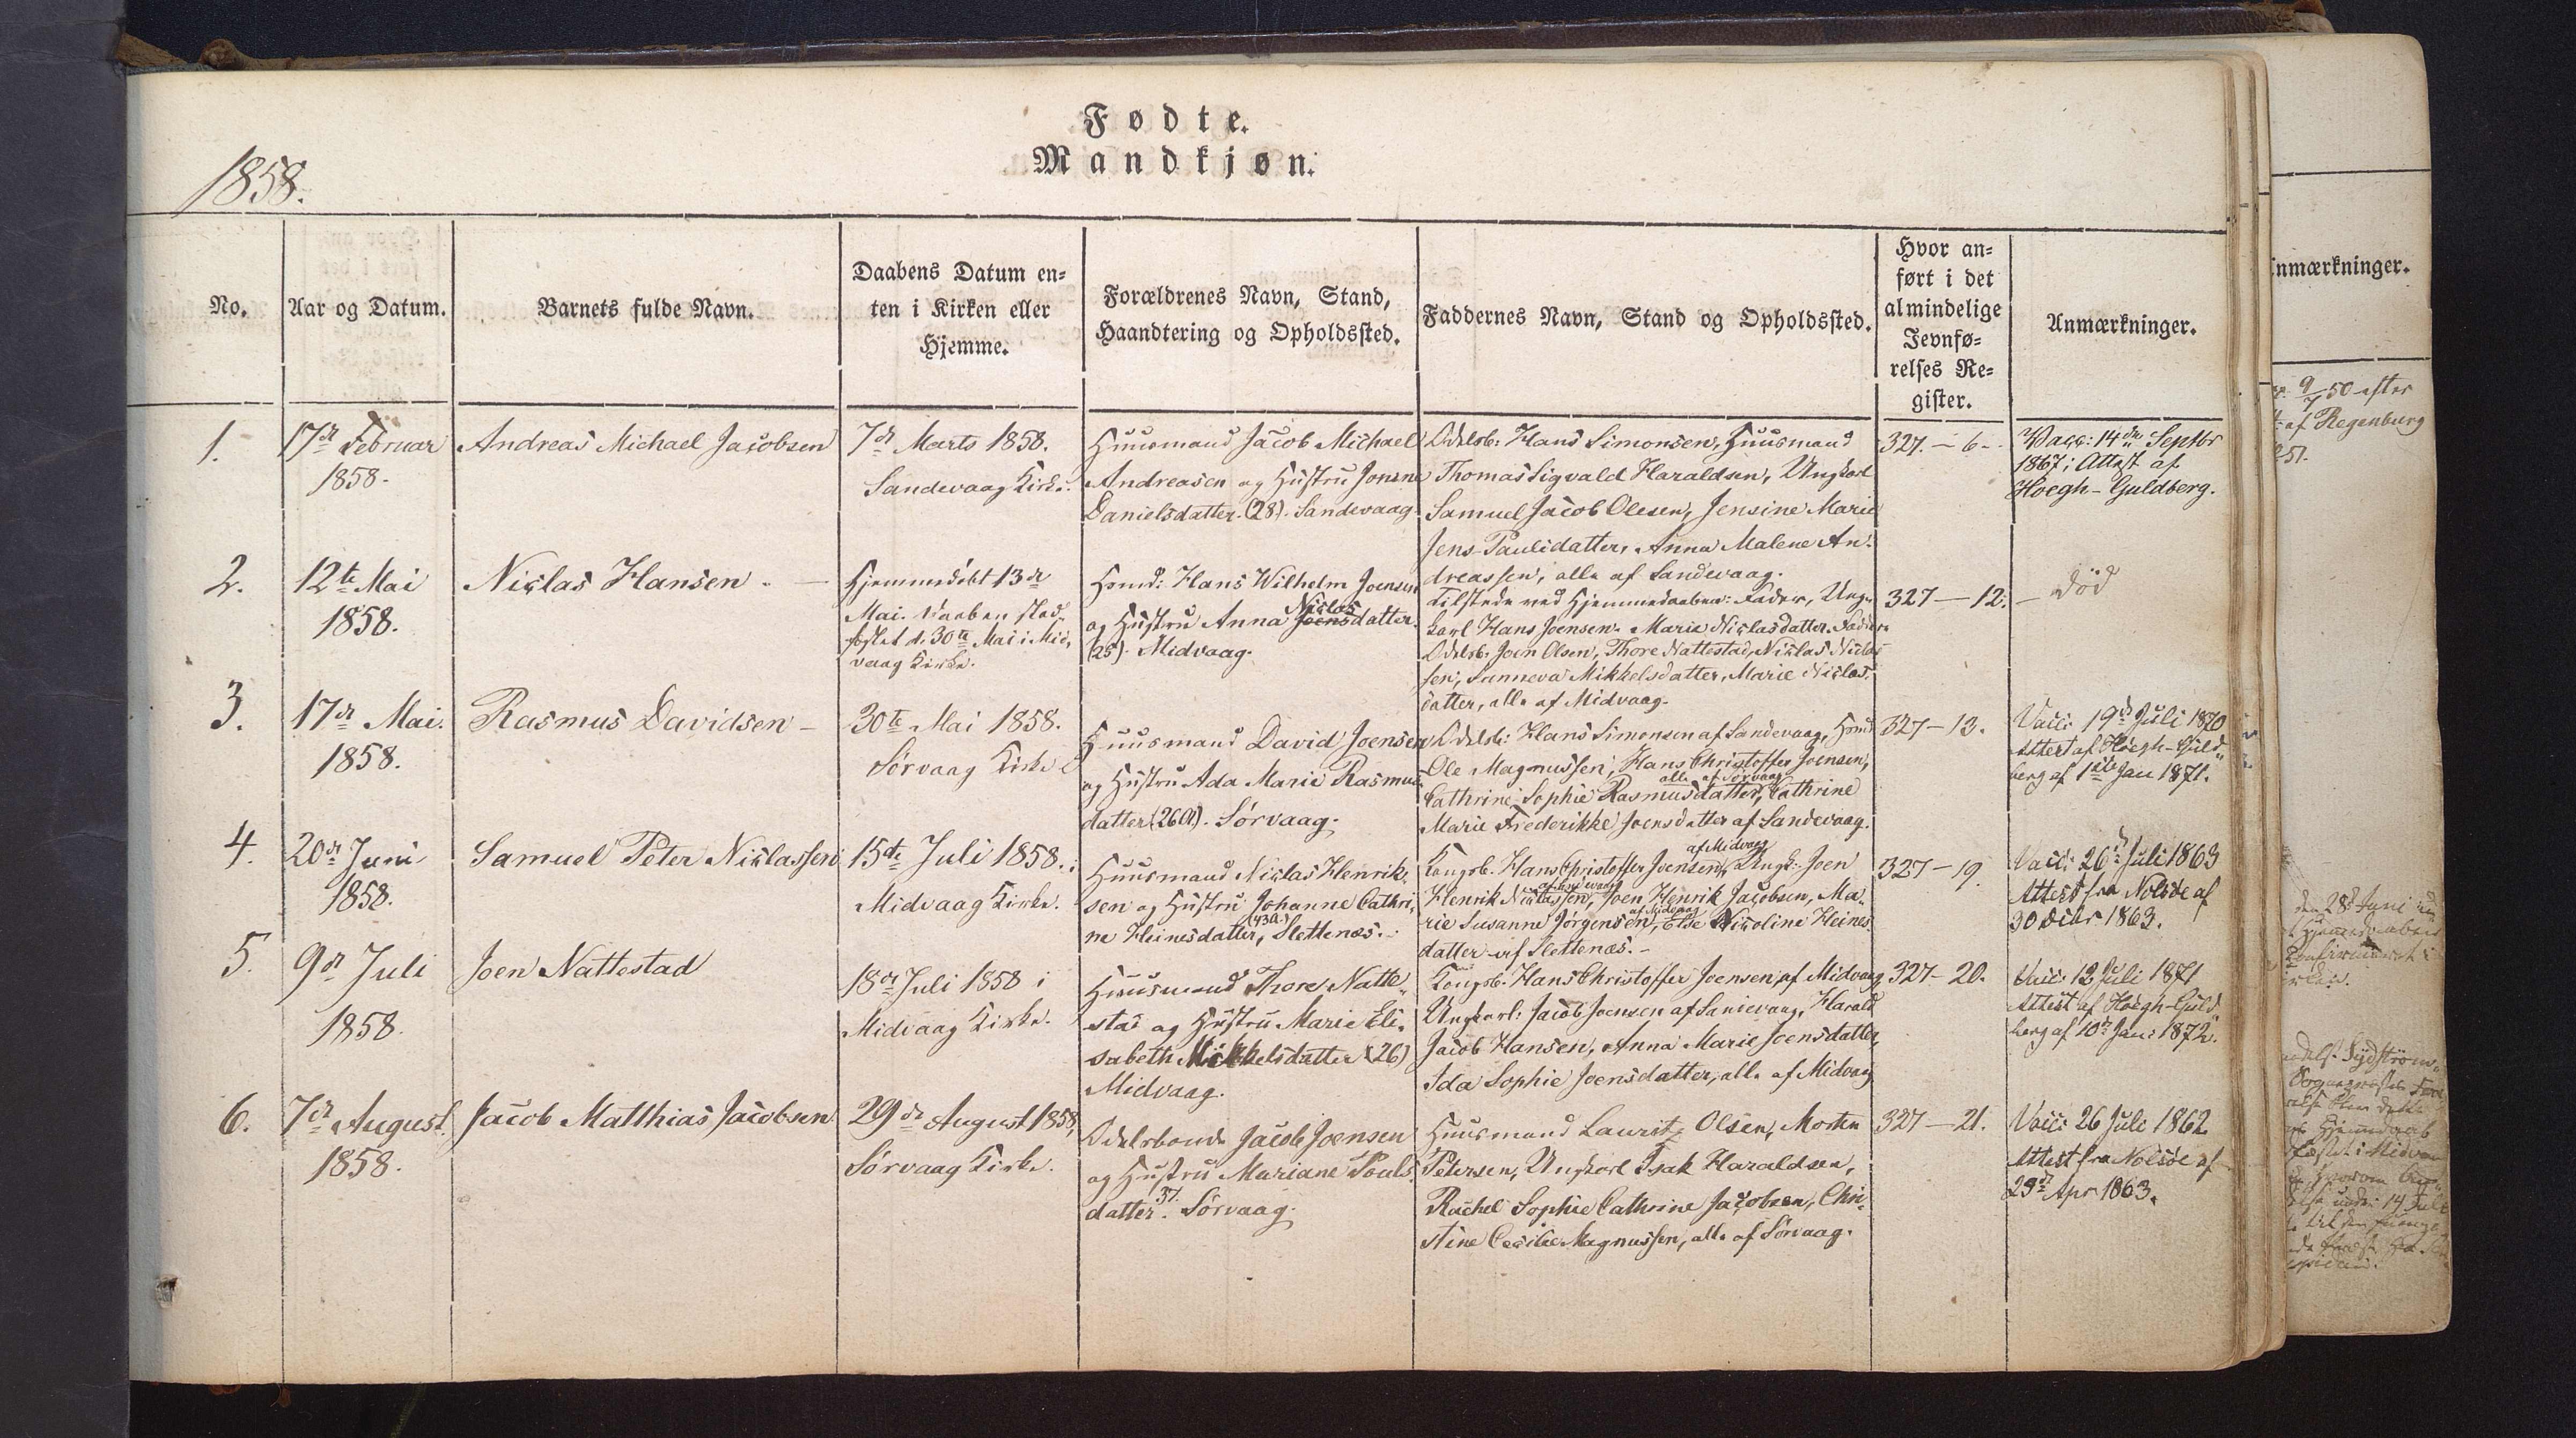 Fødte.
Mandkjøn.
1858.
No.
Aar og Datum.
Barnets fulde Navn.
Daabens Datum en-
ten i Kirken eller
Hjemme.
Forældrenes Navn, Stand,
Haandtering og Opholdssted.
Faddernes Navn, Stand og Opholdssted.
Hvor an-
ført i det
almindelige
Jevnfø-
relses Re-
gister.
Anmærkninger.
1.
17de Februar
1858.
Andreas Michael Jacobsen
7de Marts 1858.
Sandevaag Kirke.
Huusmand Jacob Michael
Andreasen og Hustru Jonine
Danielsdatter. (28). Sandevaag
Odelsb: Hans Simonsen, Huusmand
Thomas Sigvald Haraldsen, Ungkarl
Samuel Jacob Olesen, Jensine Marie
Jens-Paulidatter, Anna Malene An-
dreassen, alle af Sandevaag.
327. - 6 -
Vacc: 14de Septbr
1867; Attest af
Hoegh-Guldberg.
2.
12te Mai
1858.
Niclas Hansen. -
Hjemmedøbt 13de
Mai. Daaben stad-
fæstet d. 30te Mai i Mid-
vaag Kirke.
Hmd: Hans Wilhelm Joensen
og Hustru Anna Joensdatter.
Niclas
(25). Midvaag.
Tilstede ved Hjemmedaaben: Fader, Ung-
karl Hans Joensen. Marie Niclasdatter. Faddere
Odelsb. Joen Olsen, Thore Nattestad, Niclas Niclas
sen, Sunneva Mikkelsdatter, Marie Niclas-
datter, alle af Midvaag.
327 - 12. -
død
3.
17de Mai.
1858.
Rasmus Davidsen -
30te Mai 1858.
Sørvaag Kirke
Huusmand David Joensen
og Hustru Ada Marie Rasmus-
datter (26A). Sørvaag.
Odelsb: Hans Simonsen af Sandevaag, Hmd
Ole Magnussen, Hans Christoffer Joensen,
alle af Sørvaag
Cathrine Sophie Rasmusdatter, Cathrine
Marie Frederikke Joensdatter af Sandevaag.
327 - 13.
Vacc: 19de Juli 1870
Attest af Höegh-Guld-
berg af 1ste Jan 1871.
4.
20de Juni
1858.
Samuel Peter Niclassen
15de Juli 1858. i
Midvaag Kirke.
Huusmand Niclas Henrik-
sen og Hustru Johanne Cathri-
ne Heinesdatter, (43A.) Slettenæs. -
af Midvaag
Kongsb. Hans Christoffer Joensen, Ungk: Joen
Henrik Niclassen, Joen Henrik Jacobsen, Ma-
af Midvaag
rie Susanne Jørgensen, Else Nicoline Heines
datter af Slettenæs. -
327 - 19.
Vacc: 26de Juli 1863
Attest fra Nolsöe af
30 Decbr 1863.
5.
9de Juli
1858.
Joen Nattestad
18de Juli 1858 i
Midvaag Kirke.
Huusmand Thore Natte-
stad og Hustru Marie Eli-
sabeth Mikkelsdatter (26)
Midvaag.
Kongsb. Hans Christoffer Joensen af Midvaag,
Ungkarl: Jacob Joensen af Sandevaag, Harald
Jacob Hansen, Anna Marie Joensdatter,
Ada Sophie Joensdatter, alle af Midvaag
327 - 20.
Vacc: 12 Juli 1871
Attest af Höegh-Guld-
berg af 10de Jan: 1872.
6.
7de August.
1858.
Jacob Matthias Jacobsen
29de August 1858,
Sørvaag Kirke.
Odelsbonde Jacob Joensen
og Hustru Mariane Pouls-
datter. 37. Sørvaag.
Huusmand Lauritz Olsen, Morten
Petersen, Ungkarl Isak Haraldsen,
Rachel Sophie Cathrine Jacobsen, Chri-
stine Cecilie Magnussen, alle af Sørvaag.
327 - 21.
Vacc: 26 Juli 1862
Attest fra Nolsöe af
29de Apr 1863.
nmærkninger.
9/7 50 efter
af Regenburg
251.
den 28de Juni